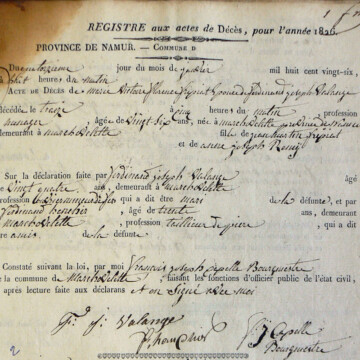 REGISTRE aux actes de Décès, pour l'année 1826.
PROVINCE DE NAMUR. — COMMUNE D
Du quatorzieme jour du mois de janvier mil huit cent vingt-six
à huit heures du matin
ACTE DE DÉCÈS de marie Victoire
décédée le treize à cinq heures du matin profession
ménager âgée de Vingt six ans, née à marchovelette province de namur
demeurant à marchovelette fille de jean martin
et de anne joseph
Sur la déclaration faite par ferdinand joseph Valange âgé
de Vingt quatre ans, demeurant à marchovelette
profession qui a dit être mari de la défunte, et par
ferdinand âgé de trente ans, demeurant
marchovelette profession tailleur de pierre qui a dit
être amis de la défunte.
Constaté suivant la loi, par moi françois joseph Capelle Bourgmestre
de la commune de marchovelette, faisant les fonctions d'officier public de l'état civil,
après lecture faite aux déclarans et on signé avec moi
F. j. Valange
Capelle
Bourgmestre
2